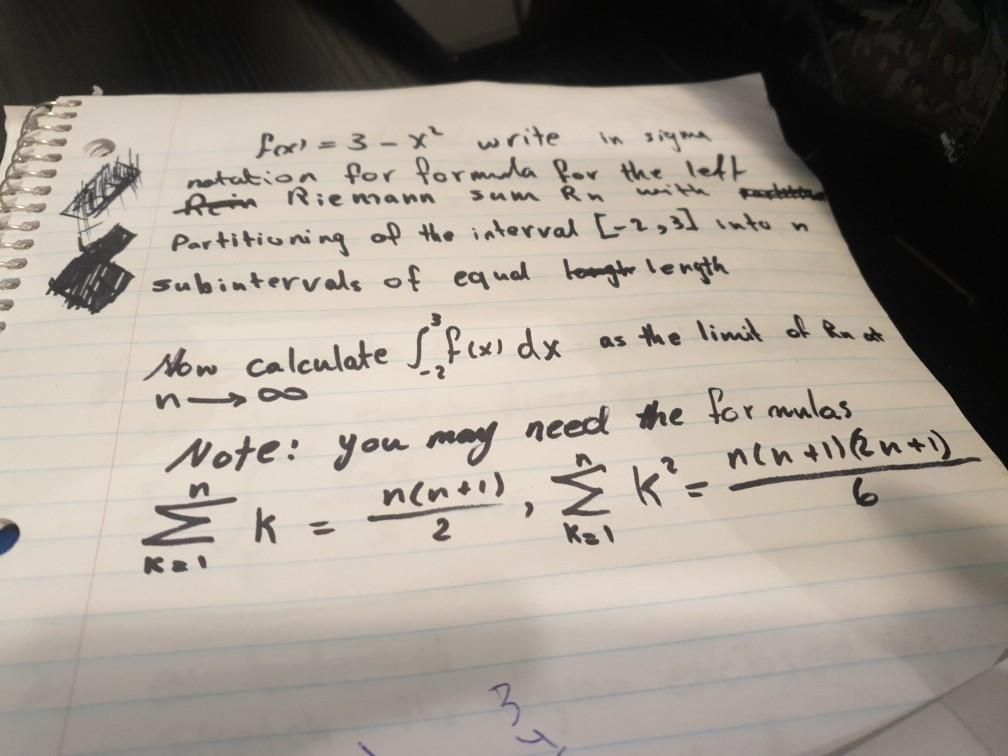 f(x) = 3 - x² write in sigma
notation for formula for the left
Riemann sum Rn with
Partitioning of the interval [-2,3] into n
subintervals of equal length
Now calculate ∫₋₂³ f(x) dx as the limit of Rn at
n → ∞
Note: you may need the formulas
∑ₖ₌₁ⁿ K = n(n+1)/2 , ∑ₖ₌₁ⁿ K² = n(n+1)(2n+1)/6
3
4